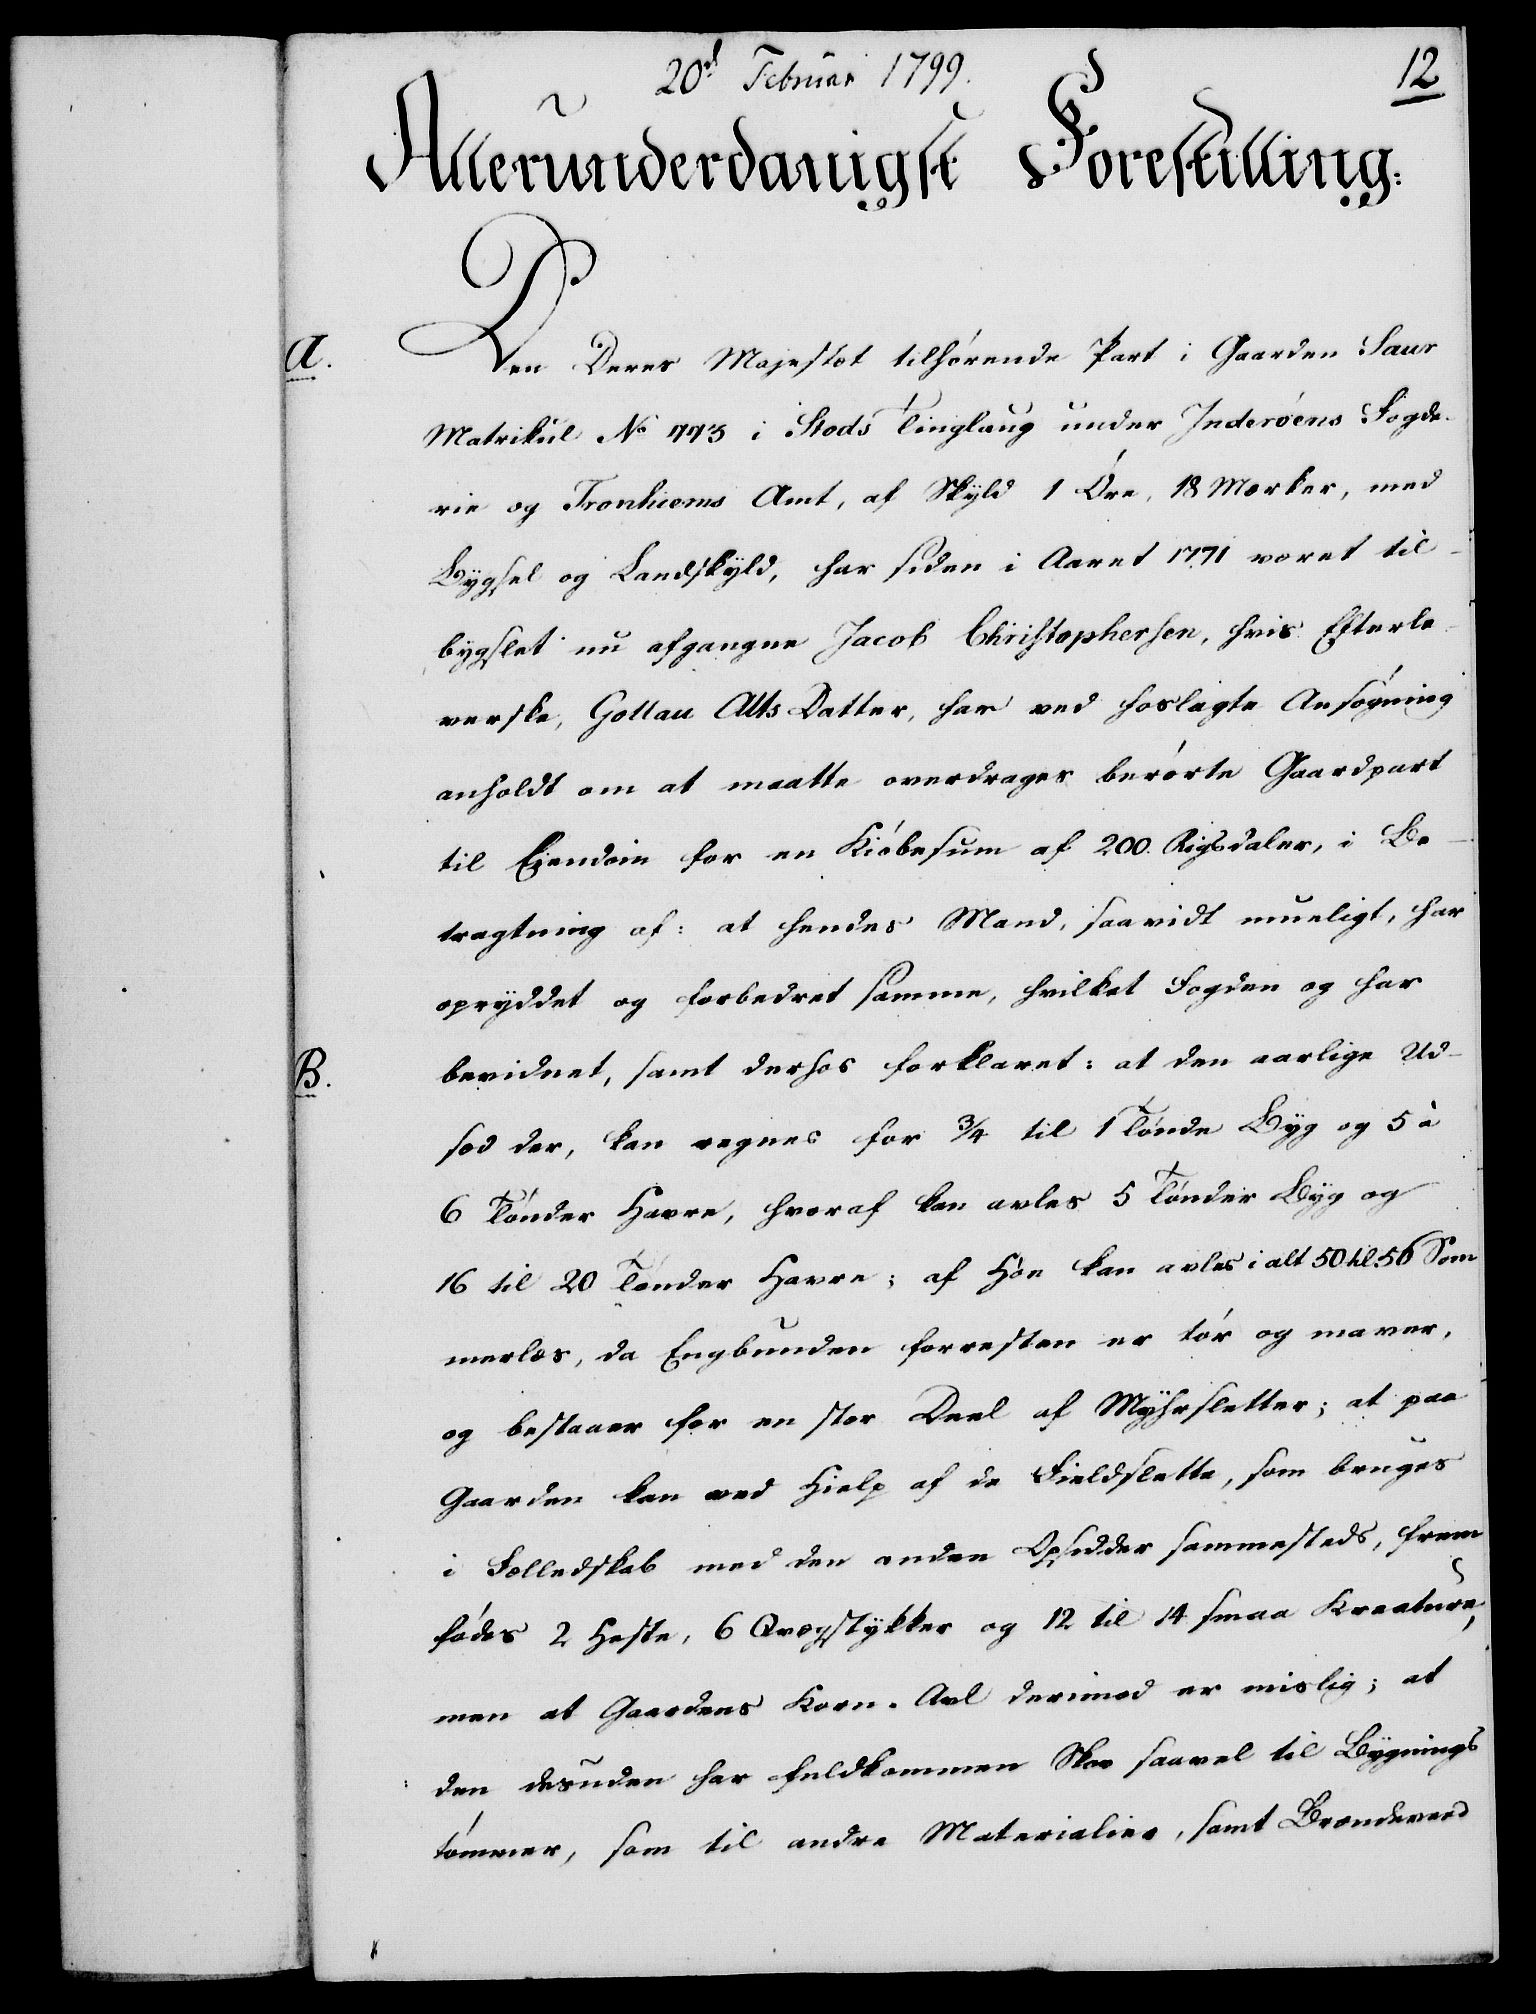 20d Februar 1799.
12
Allerunderdanigst Forestilling:
A.
Den Deres Majestet tilhørende Part i Gaarden Saur
Matrikul No 773 i Stods Tinglaug under Inderøens Fogde-
rie og Tronhiems Amt, af Skyld 1 Øre, 18 Marker, med
Bygsel og Landskyld, har siden i Aaret 1771 været til-
bygslet nu afgangne Jacob Christophersen, hvis Efterle-
verske, Gollau Atts Datter, har ved hoslagte Ansøgning
anholdt om at maatte overdrages berørte Gaardpart
til Eiendom for en Kiøbesum af 200 Rigsdaler, i Be-
tragtning af: at hendes Mand, saavidt mueligt, har
opryddet og forbedret samme, hvilket Fogden og har
B.
bevidnet, samt derhos forklaret: at den aarlige Ud-
sæd der, kan regnes for 3/4 til 1 Tønde Byg og 5 à
6 Tønder Havre, hvoraf kan avles 5 Tønder Byg og
16 til 20 Tønder Havre; af Høe kan avles i alt 50 til 56 Som
merlæs, da Engbunden forresten er tør og maver,
og bestaaer for en stor Deel af Myhrsletter; at paa
Gaarden kan ved Hielp af de Fieldslette, som bruges
i Fælledskab med den anden Opsidder sammesteds, frem
fødes 2 Heste, 6 Qvægstykker og 12 til 14 smaa Kreature,
men at Gaardens Korn-Avl derimod er mislig; at
den desuden har fuldkommen Skov saavel til Bygnings
tømmer, som til andre Materialier, samt Brændeved